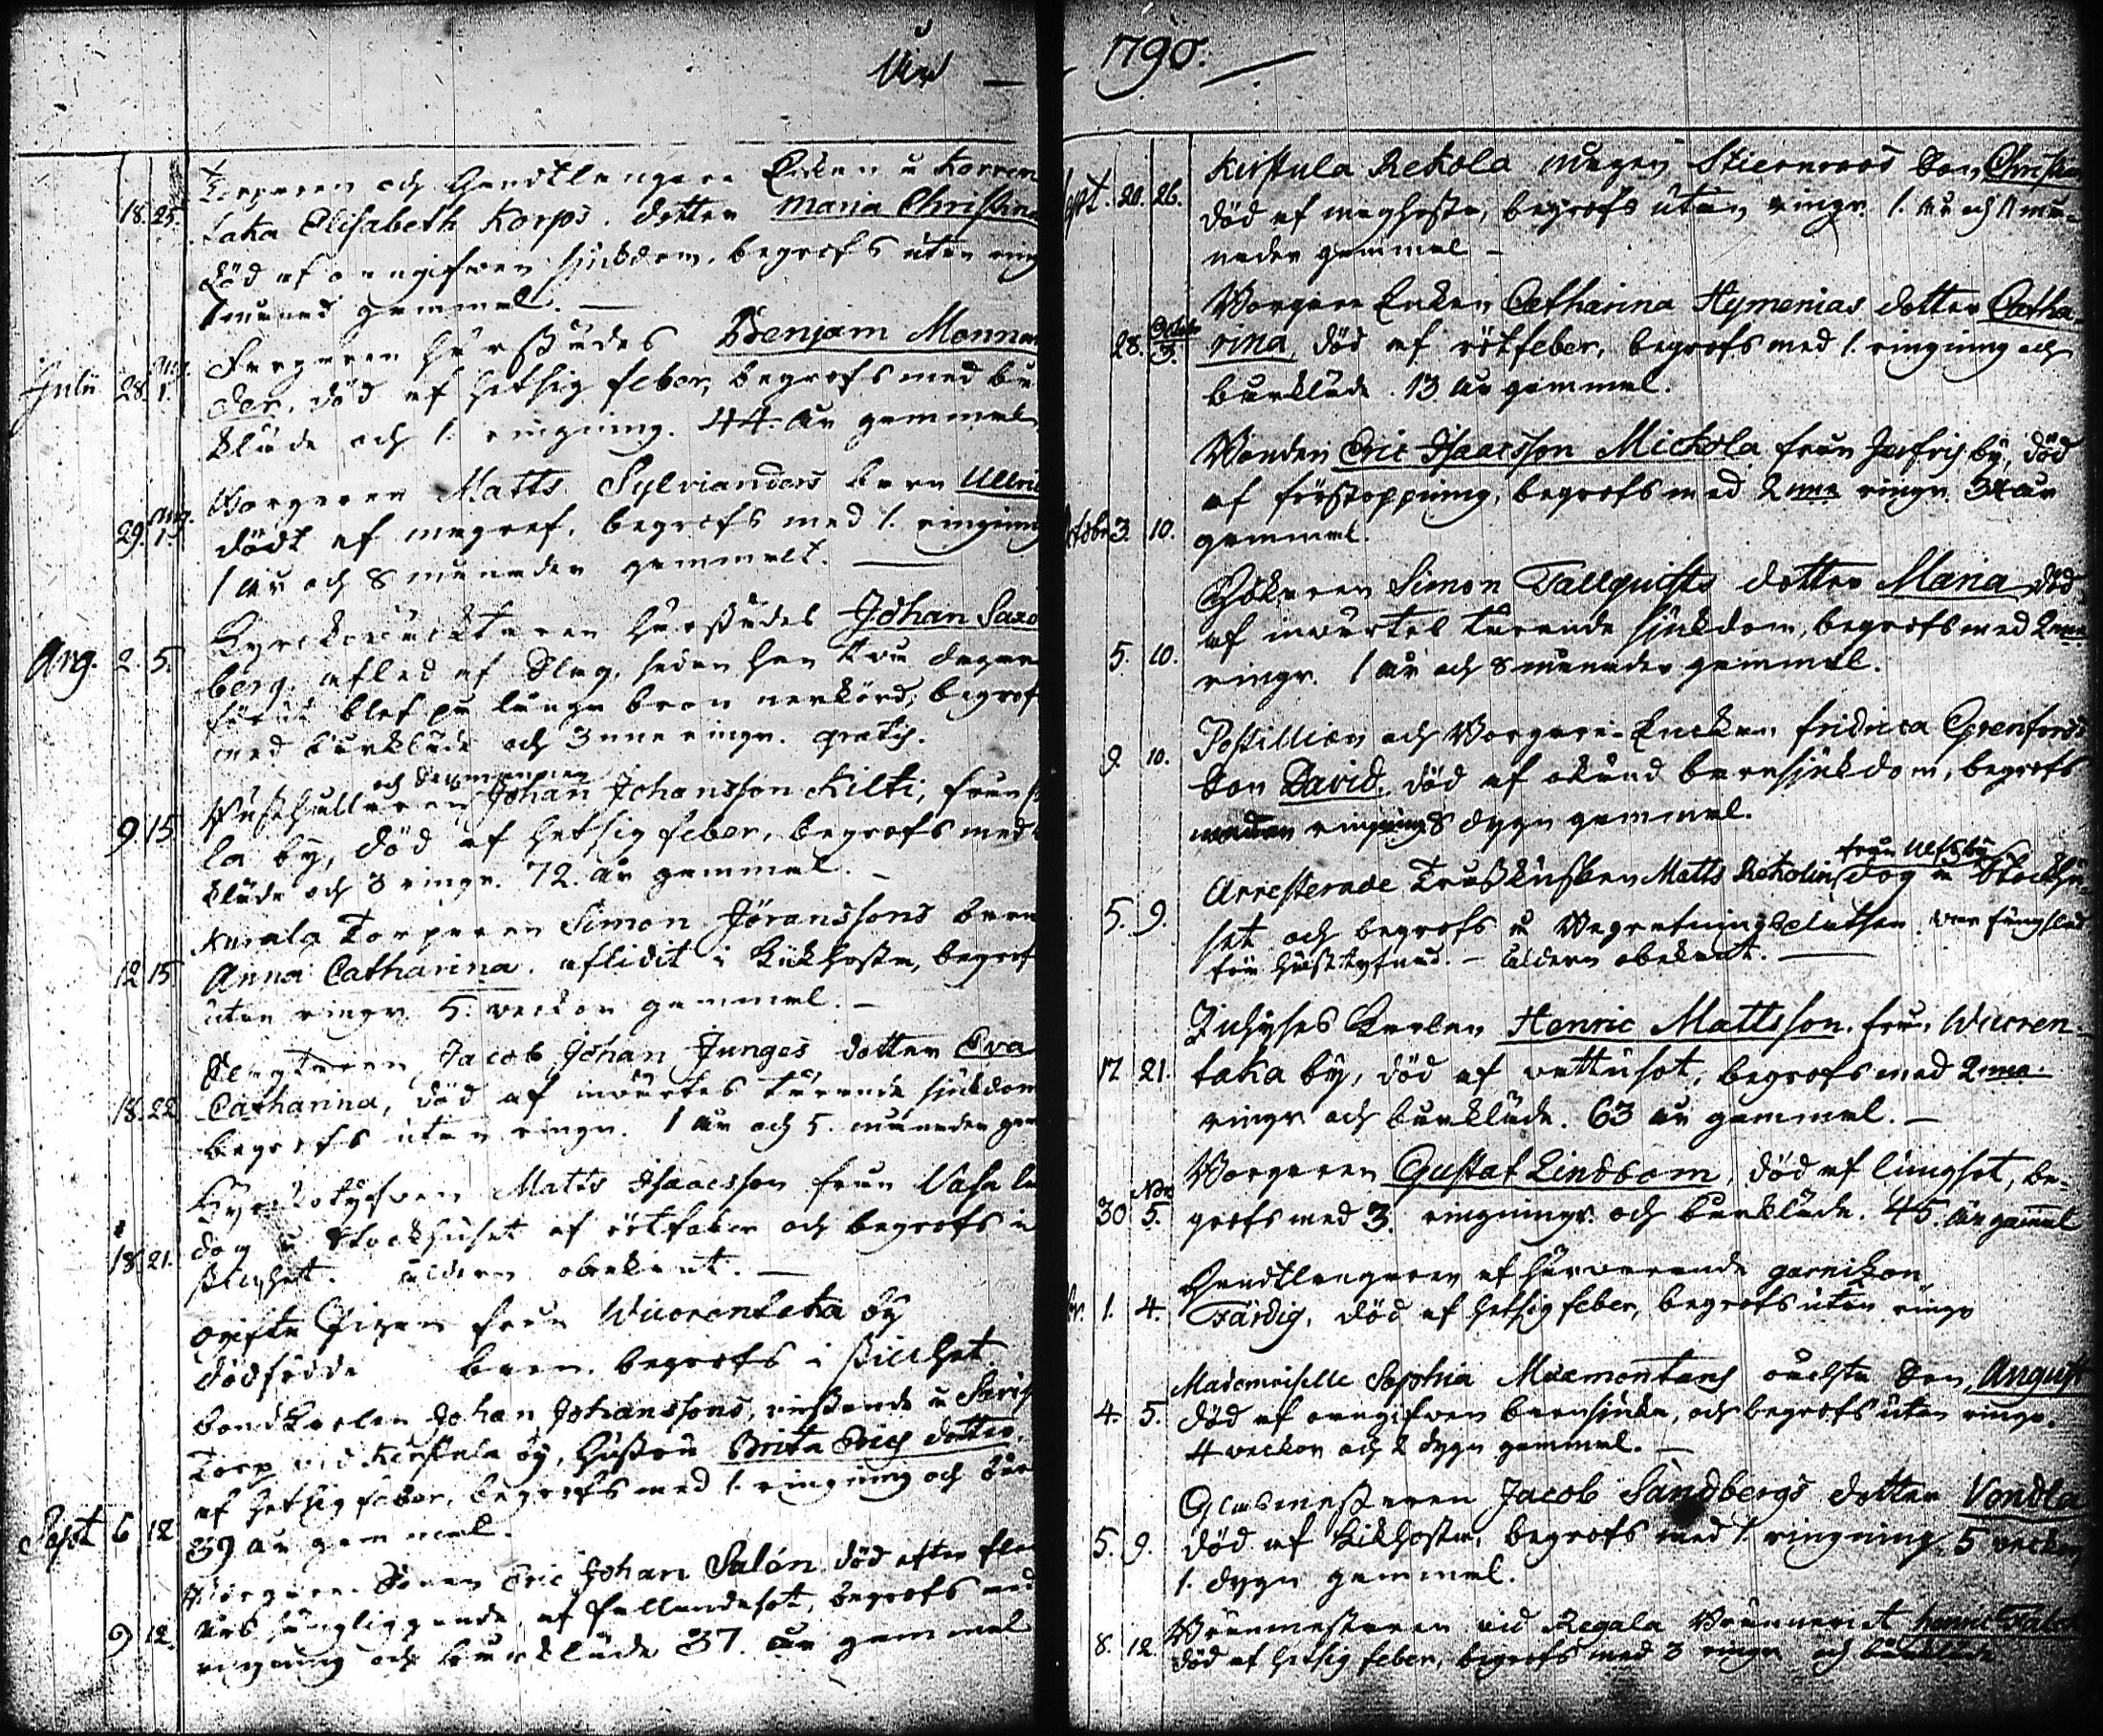 År 1790.
18. 25. Torparen och Handtlangare Enkan
taka Elisabeth Korps. dotter Maria Christina
död af oangifwen sjukdom, begrofs utan ring
1 månad gammal.
Julii 28. Aug. 1. Färgaren härstädes Benjam Monnan
der, död af hetsig feber, begrofs med bår
kläde och 1. ringning. 44. år gammal
29. Aug. 1. Borgaren Matts Sylvianders barn Ullric
dödt af magref, begrofs med 1. ringning
1 år och 8 månader gammalt.
Aug. 2. 5. härstädes Johan Saxo
berg, afled af slag, sedan han två dagar
förut blef på långa bron nerkörd, begrof
med bårkläde och 3nne ringn. gratis.
9. 15. och Johan Johansson Kilti, från
la by, död af hetsig feber, begrofs med
kläde och 3 ringn. 72. år gammal.
12. 15. Kurala Torparen Simon Jöranssons barn
Anna Catharina, aflidit i Kikhosta, begrof
utan ringn. 5. veckor gammal.
18. 22. Jacob Johan Junges dotter Eva
Catharina, död af invärtes tärande sjukdom
begrofs utan ringn. 1 år och 5. månader gam
18. 21. Kyrkotjufven Matts Isaacsson från Vasa
dog å Stockhuset af rötfeber och begrofs i
stillhet. åldern obekant.
ogifta Pigans från Wuorentaka by
dödfödde barn, begrofs i stillhet.
Bondkarlen Johan Johanssons, vistande å
Torp vid Kirstula by, hustru Brita Erics dotter,
af hetsig feber, begrofs med 1. ringning och bår
Sept 6 12 39 år gammal.
Borgare Sonen Eric Johan Salén död efter
års sängliggande, af fallandesot, begrofs med
9 12. ringning och bårkläde 37. år gammal
Sept. 20. 26. Kirstula Rekola mågen Stiernroos Son, Christian
död af maghosta, begrofs utan ringn. 1. år och 11 må-
nader gammal
28. Octobr 3. Borgare Enkan Catharina Hymenias dotter Catha-
rina död af rötfeber, begrofs med 1. ringning och
bårkläde. 13 år gammal.
Bonden Eric Isaacsson Mickola från by, död
af förstoppning, begrofs med 2nne ringn. 34 år
Octobr 3. 10. gammal.
Simon Tallquists dotter Maria död
af invärtes tärande sjukdom, begrofs med 2nne
5. 10. ringn. 1 år och 8 månader gammal.
9. 10. Postillion och Borgare-Enckan Fridrica Grenfords
Son David, död af okänd barnsjukdom, begrofs
ringning 8 dygn gammal.
från Ulfsby
5. 9. Arresterade Matts Rekolin dog å Stockhu-
set och begrofs å var fängslad
för hästtjufnad. - åldern obekant.
Inhyses Karlen Henric Mattsson, från Wuoren-
17 21. taka by, död af vattusot, begrofs med 2nne
ringn och bårkläde. 63 år gammal.
Borgaren Gustaf Lindbom, död af lungsot, be-
30 Nov 5. grofs med 3. ringningr. och bårkläde. 45. år gammal
Handtlangaren af härvarande garnizon,
1. 4. Färdig, död af hetsig feber, begrofs utan ringn
Mademoiselle Sophia oächta Son, August
4. 5. död af oangifven barnsjuka, och begrofs utan ringn.
4 veckor och 2 dygn gammal.
Glasmästaren Jacob Sandbergs dotter Vendla
5. 9. död af kikhosta, begrofs med 1. ringning, 5 veckor
1. dygn gammal.
8. 12. Brännmästaren vid Regala Bränneriet Henric
död af hetsig feber, begrofs med 3 ringn och bårkläde